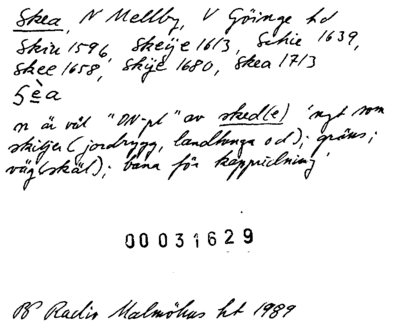 Skea, N Mellby, V Göinge hd
Skiu 1596, Skeije 1613, Schie 1639,
Skee 1658, Skije 1680, Skea 1713
Sèa
n är väl "ON-pl" av sked(e) 'ngt som
skiljer (jordrygg, landtunga od); gräns;
väg(skäl); bana för kappridning'
00031629
Radio Malmöhus ht 1989